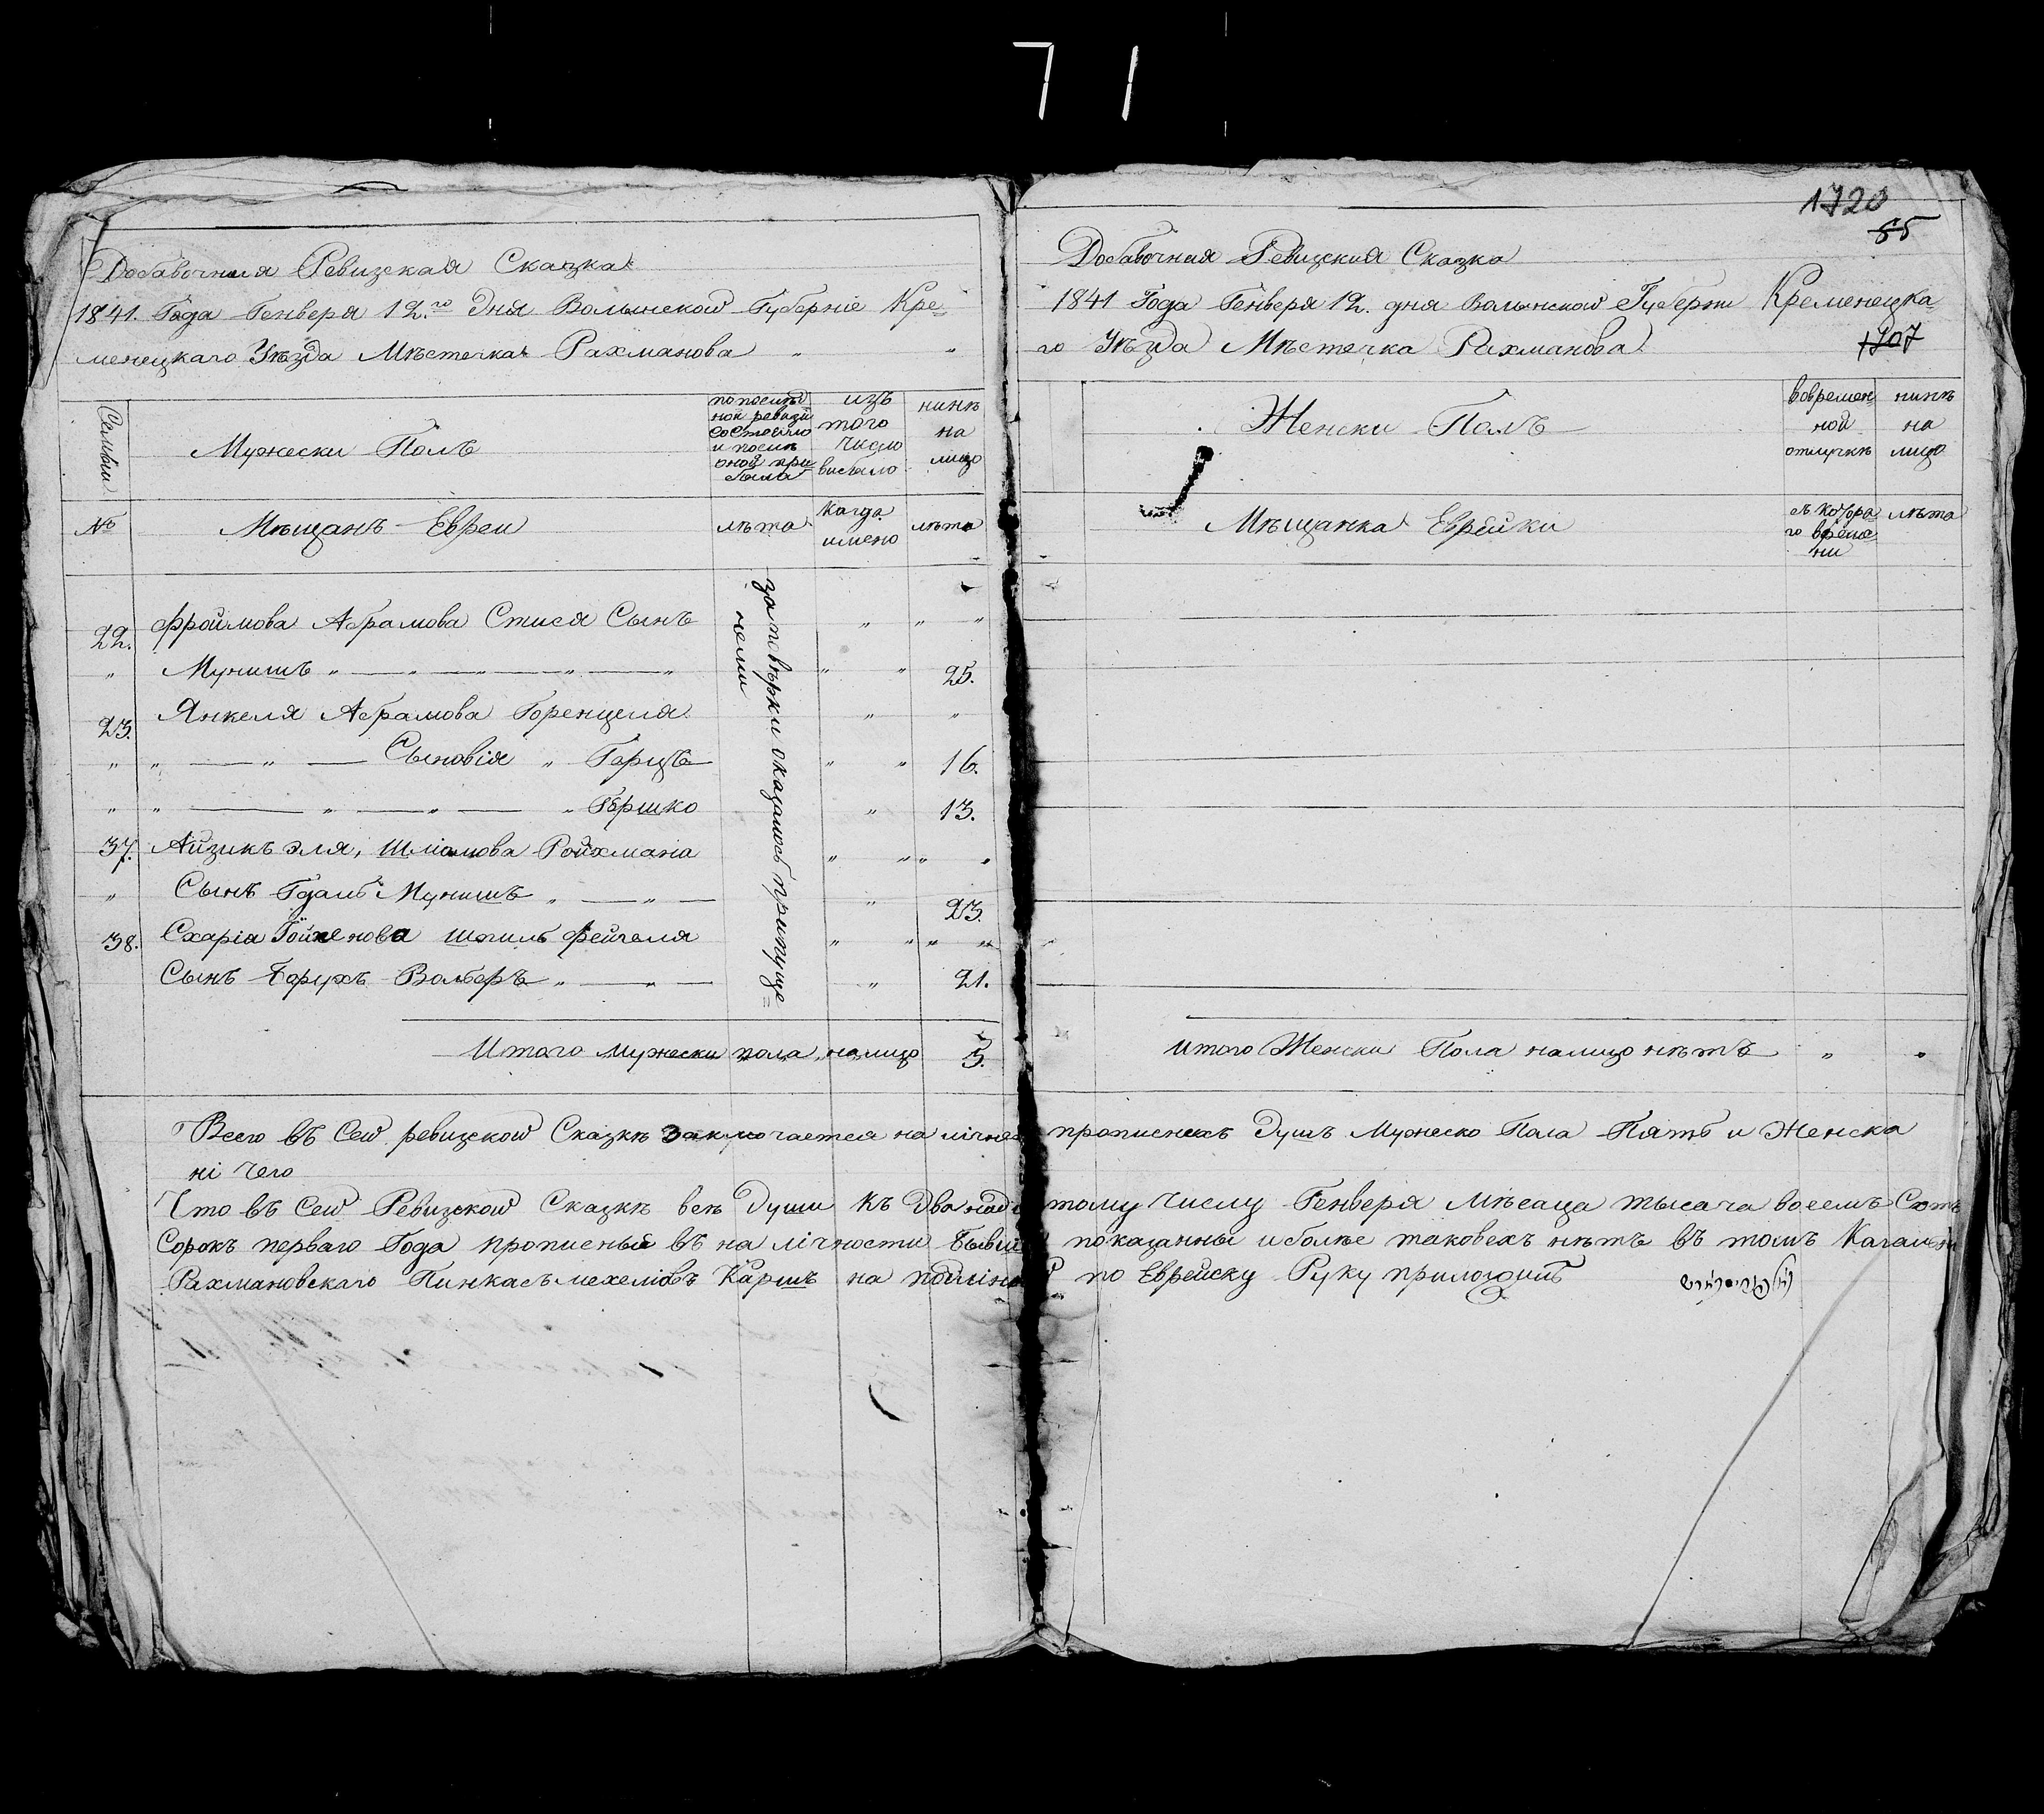 71
Добавочная Ревизская Сказка
1841. Года Генверя 12.го Дня Волынской Губерніе Кре=
менецкаго Уѣзда Мѣстечка Рахманова " "
Семьи
Мужески Полъ
по послѣд
ной ревизіи
состояло
и послѣ
оной при
была
изъ
того
число
выбыло
нинѣ
на
лицо
№
Мѣщанъ Евреи
лѣта
Когда
имено
лѣта
за повѣрки оказалось пропуще=
нели
22. Фроймова Абрамова Стися Сынъ " " "
" Мунишъ " " " " " 25.
23. Янкеля Абрамова Горенцеля " "
" " " Сыновія " Герцъ " " 16.
" " " " " Гершко " 13.
37. Айзикъ Эля, Шліомова Ройхмана " " " "
" Сынъ Гдаль Мунишъ " " " 23.
38. Схаріа Гойхенова Шмиль Фейгеля " " " "
Сынъ Борухъ Вольеръ " " " 21.
Итого мужески пола налицо 5.
1720
85
Добавочная Ревизския Сказка
1841 Года Генверя 12. дня Волынской Губерти Кременецка
го Уѣзда Мѣстечка Рахманова
1707
Женски Полъ
вовремен
ной
отлучкѣ
нинѣ
на
лицо
Мѣщанка Еврейки
съ котора
го време=
ни
лѣта
итого Женски Пола налицо нѣтъ " "
Всего въ Сей ревизской Сказкѣ заключается на лічне прописнехъ Душъ Мужеско Пола Пять и Женска
ні чего
Что въ Сей Ревизской Сказкѣ всѣ Души къ Двонад тому числу Генверя Мѣсаца тысача восемъ Сотъ
Сорокъ перваго Года прописный въ на лічности бывш показанны и болѣе таковехъ нѣтъ въ томъ Кагал
Рахмановскаго Пинкасъ Мехеліовъ Каршъ на поліно по Еврейску Руку приложилъ